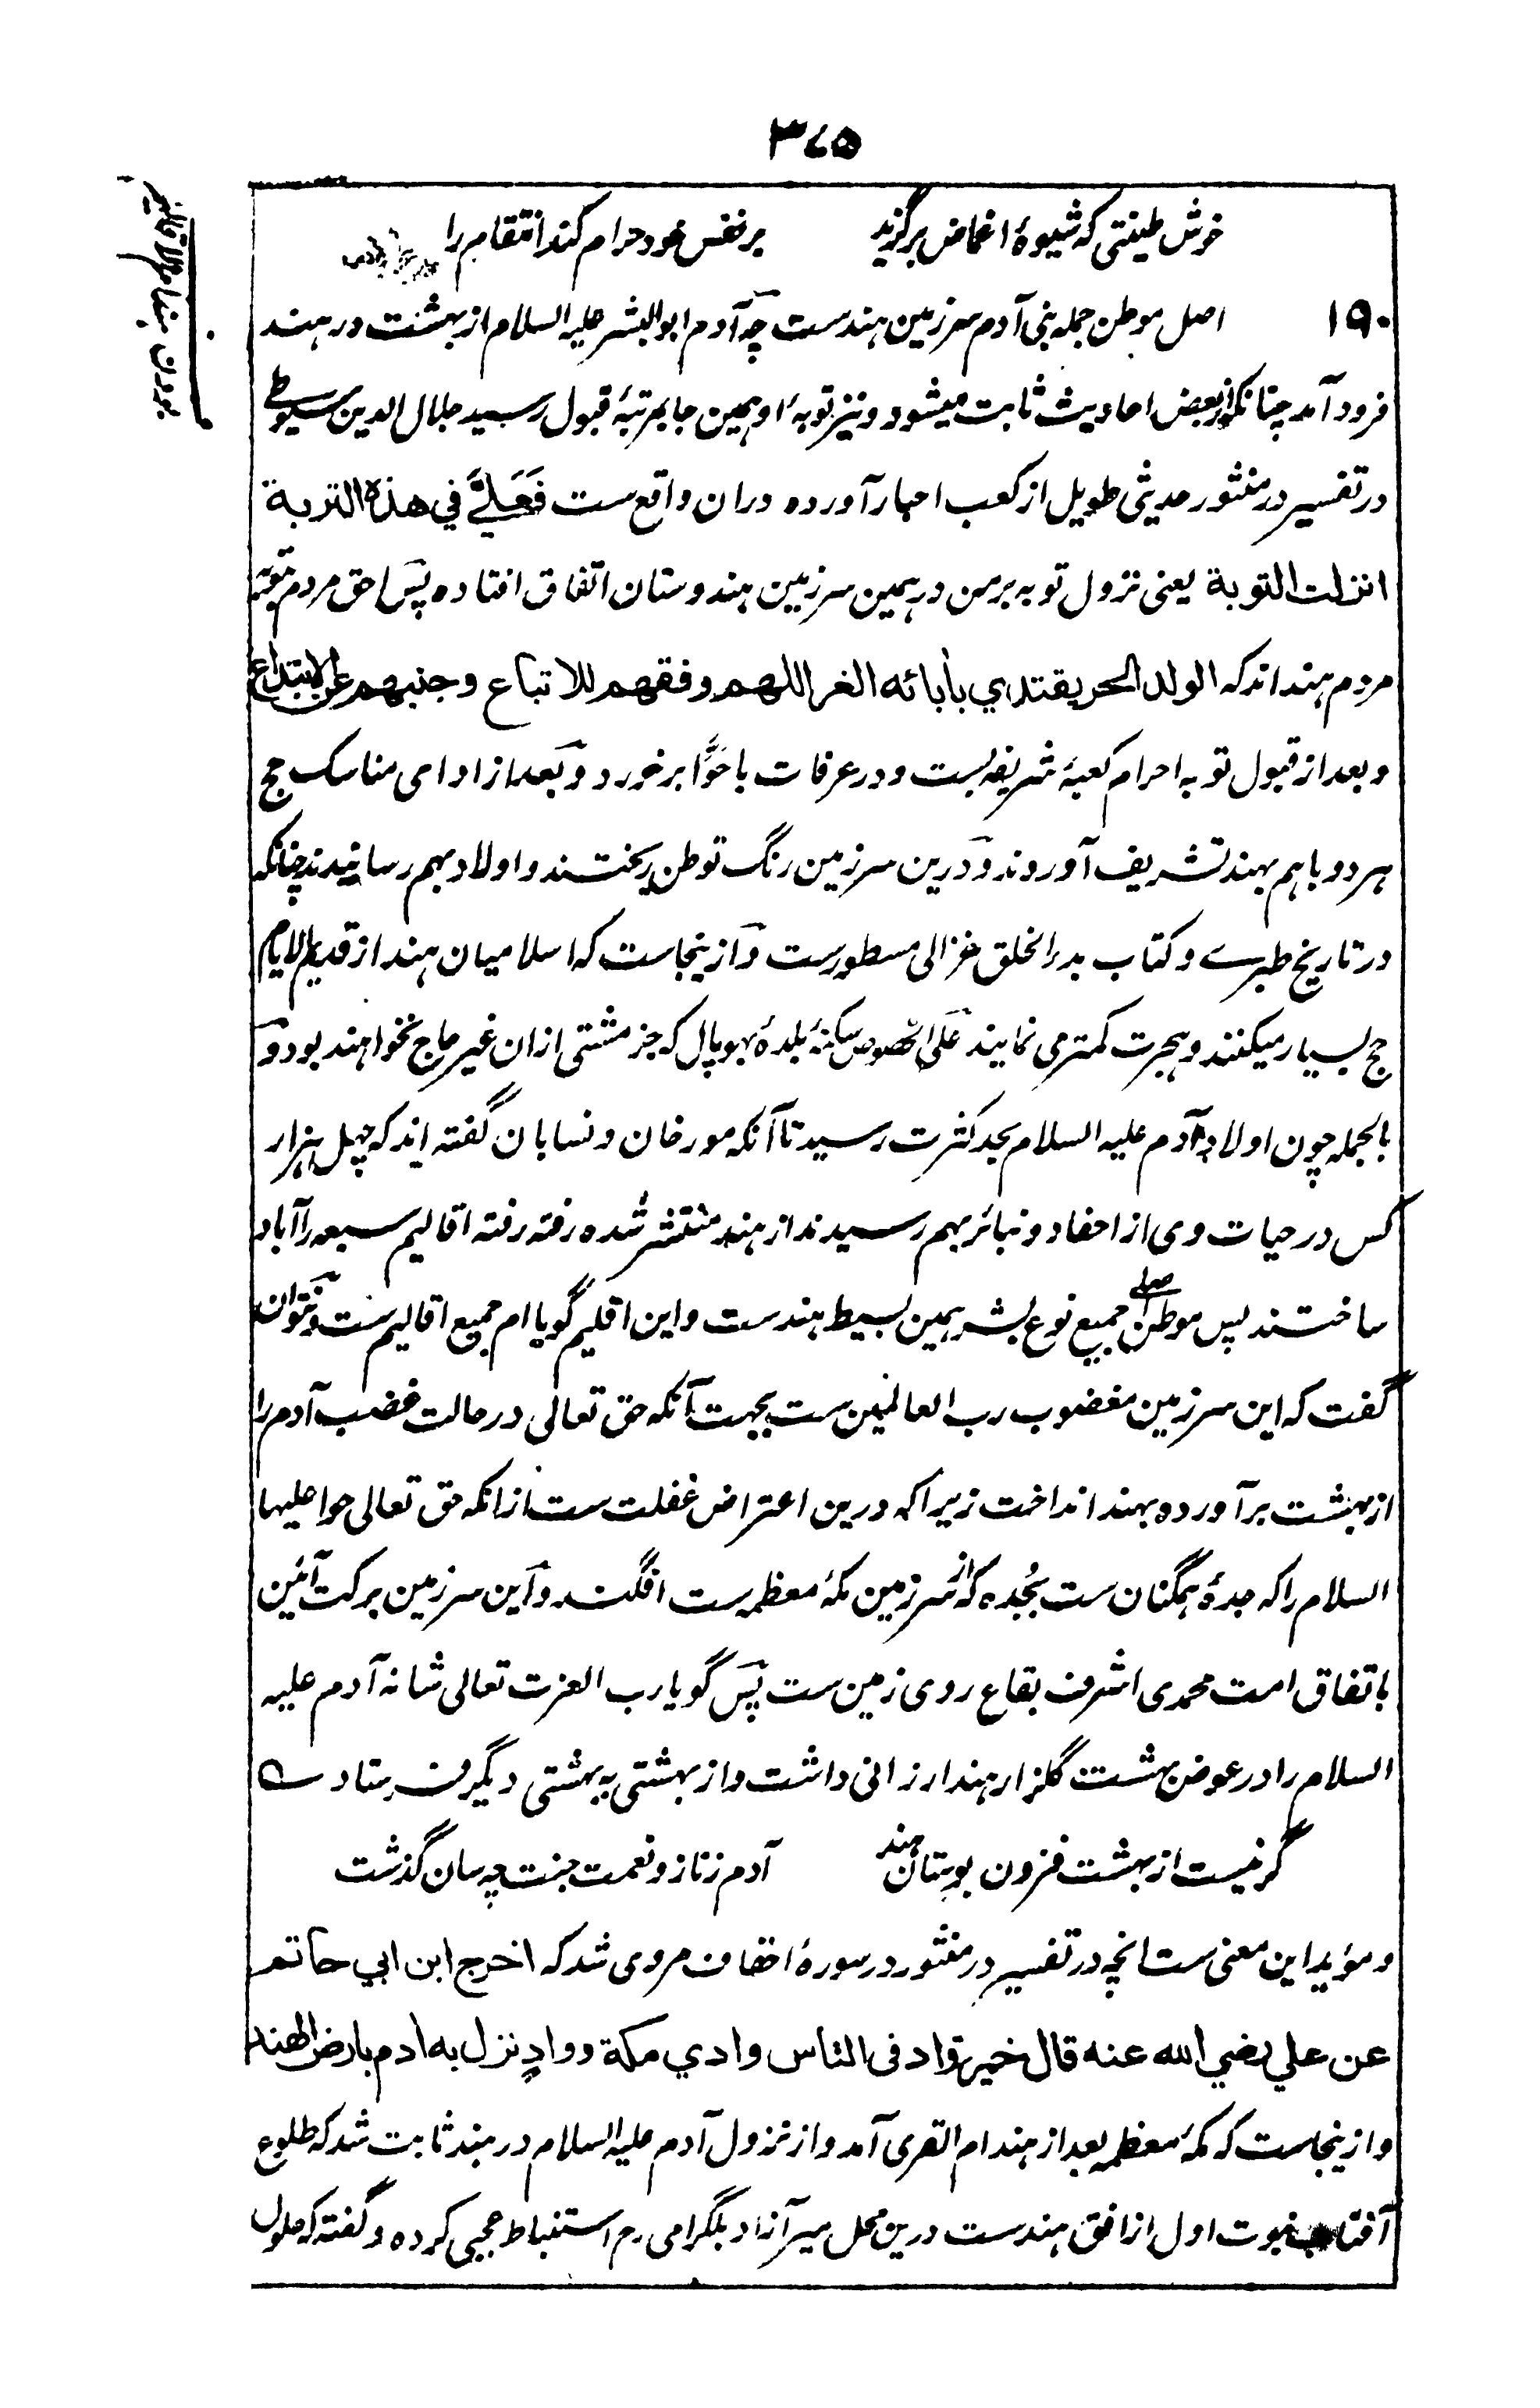 ۳۷۵
خوش طینتی که شیوهٔ اغماض برگزید بر نفس خود حرام کند انتقام را
۱۹۰ اصل موطن جمله بنی آدم سرزمین هندست چه آدم ابوالبشر علیه السلام از بهشت در هند
فرود آمد چنانکه از بعض احادیث ثابت میشود و نیز توبهٔ او همین جا بمرتبهٔ قبول رسید جلال الدین سیوطی
در تفسیر در منثور حدیثی طویل از کعب احبار آورده دران واقع ست فَعَلَیَّ في هذه التربة
انزلت التوبة یعنی نزول توبه بر من در همین سرزمین هندوستان اتفاق افتاده پس احق مردم بتوبه
مردم هند اند که الولد الحر يقتدي بأبائه الغر اللهم وفقهم للاتباع وجنبهم عن الابتداع
و بعد از قبول توبه احرام کعبهٔ شریفه بست و در عرفات با حَوَّا برخورد و بعد از ادای مناسک حج
هر دو باهم بهند تشریف آوردند و درین سرزمین رنگ توطن ریختند و اولاد بهم رسانیدند چنانکه
در تاریخ طبرے و کتاب بدء الخلق غزالی مسطورست و ازینجاست که اسلامیان هند از قدیم الایام
حج بسیار میکنند و هجرت کمتر می نمایند علی الخصوص سکنهٔ بلدهٔ بهوپال که جز مشتی ازان غیر حاج نخواهند بود و
بالجمله چون اولاد آدم علیه السلام بحد کثرت رسید تا آنکه مورخان و نسابان گفته اند که چهل هزار
کس در حیات وی از احفاد و نبائر بهم رسیدند از هند منتشر شده رفته رفته اقالیم سبعه را آباد
ساختند پس موطن اصلی جمیع نوع بشر همین بسیط هندست و این اقلیم گویا ام جمیع اقالیم ست و نتوان
گفت که این سرزمین مغضوب رب العالمین ست بجهت آنکه حق تعالی در حالت غضب آدم را
از بهشت برآورده بهند انداخت زیرا که درین اعتراض غفلت ست ازانکه حق تعالی حوا علیها
السلام را که جدهٔ همگنان ست بجُده که از سرزمین مکهٔ معظمه ست افگند و این سرزمین برکت آئین
باتفاق امت محمدی اشرف بقاع روی زمین ست پس گویا رب العزت تعالی شانه آدم علیه
السلام را در عوض بهشت گلزار هند ارزانی داشت و از بهشتی به بهشتی دیگر فرستاد ے
گر نیست از بهشت فزون بوستان هند آدم ز ناز و نعمت جنت چه سان گذشت
و مؤید این معنی ست انچه در تفسیر در منثور در سورهٔ احقاف مروی شد که اخرج ابن ابي حاتم
عن علي رضي الله عنه قال خير واد في الناس وادي مكة ووادٍ نزل به ادم بارض الهند
و ازینجاست که مکهٔ معظمه بعد از هند ام القری آمد و از نزول آدم علیه السلام در هند ثابت شد که طلوع
آفتاب نبوت اول از افق هندست درین محل میر آزاد بلگرامی رح استنباط عجیبی کرده و گفته که حلول